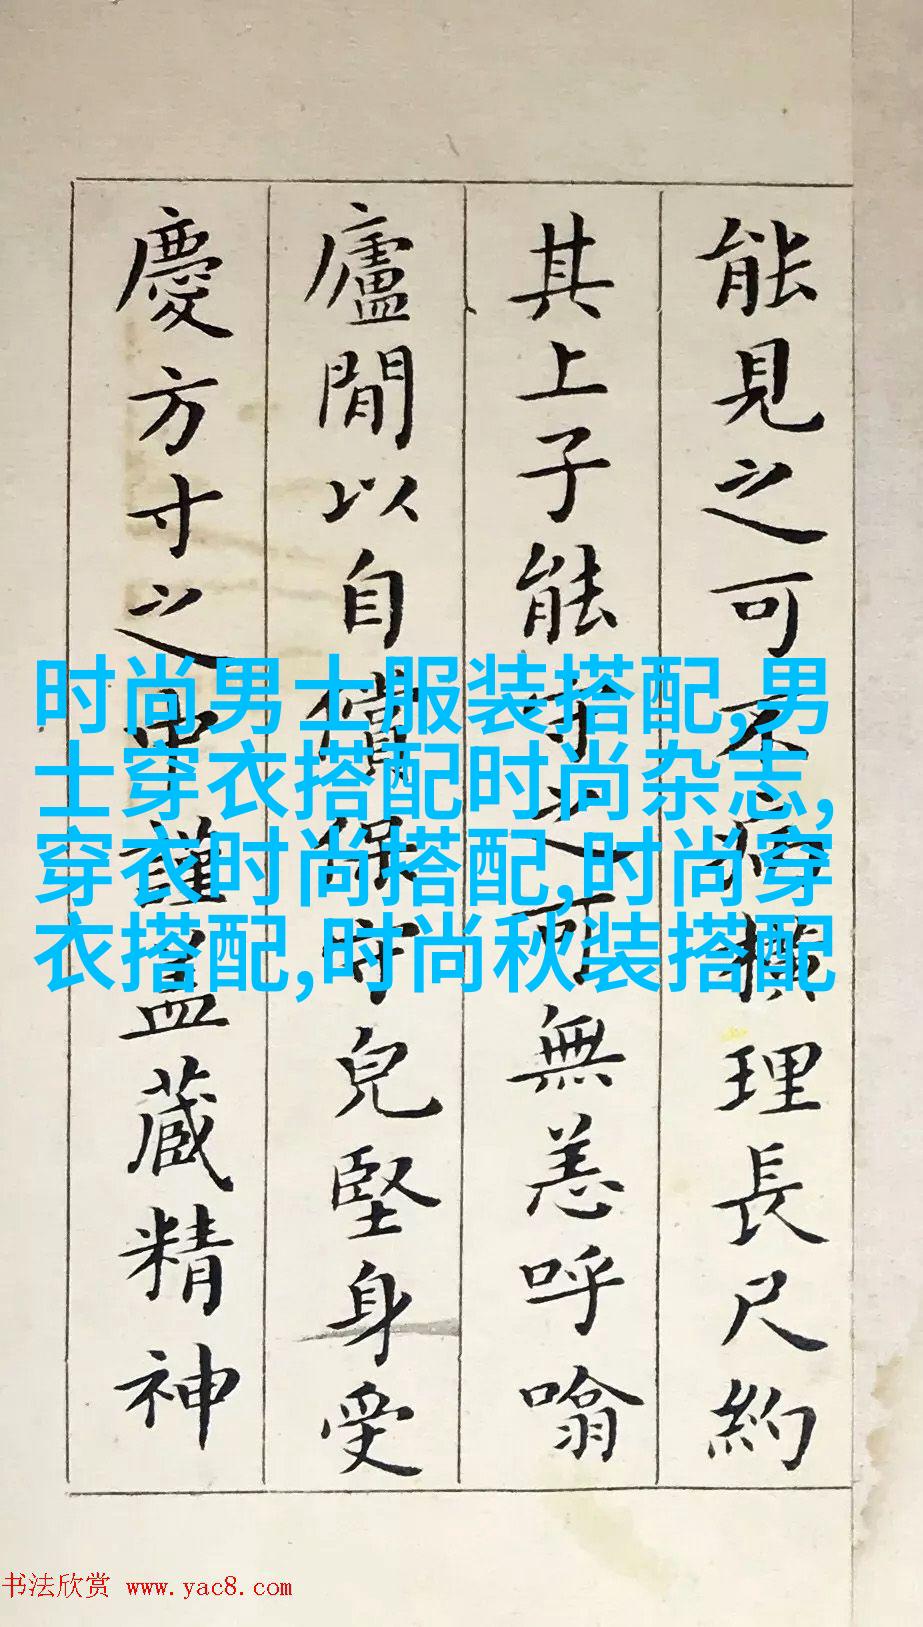 能見之可不病橫理長尺約
其上子能守之可無恙呼噏
廬閒以自償保守皃堅身受
慶方寸之中謹蓋藏精神
时尚男士服装搭配,男
士穿衣搭配时尚杂志,
穿衣时尚搭配,时尚穿
衣搭配,时尚秋装搭配
书法欣赏 www.yac8.com